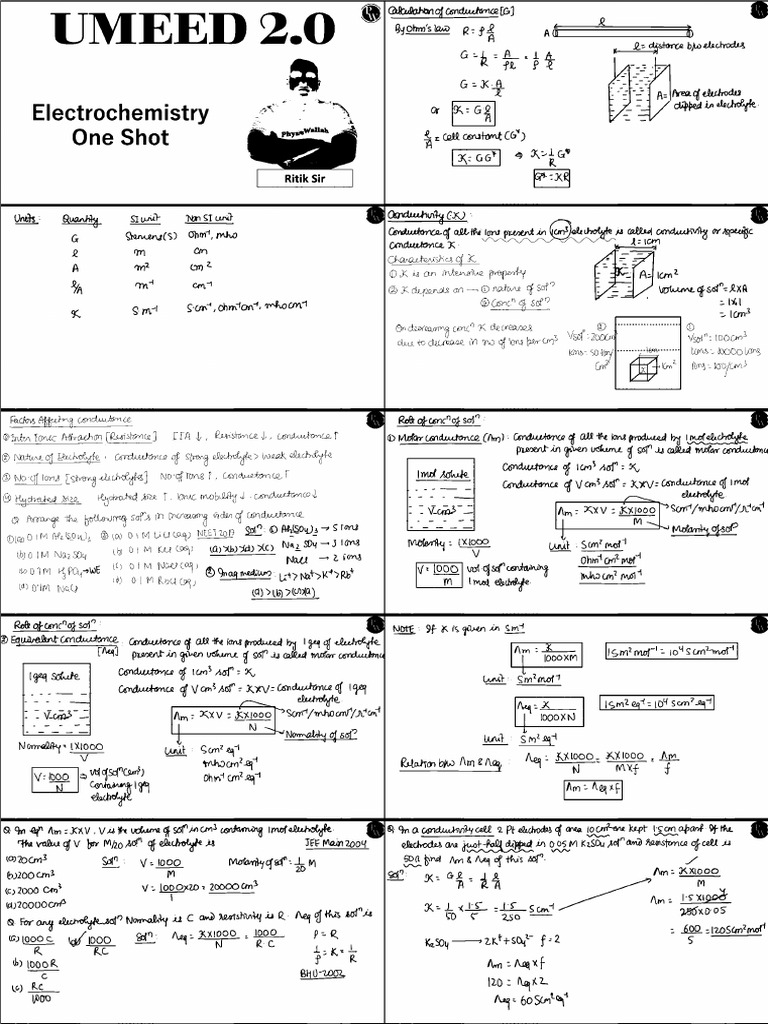 UMEED 2.0
Electrochemistry
One Shot
PhysicsWallah
Ritik Sir
Calculation of conductance [G]
By Ohm's law R = ρ l/A
G = 1/R = A/ρl = 1/ρ A/l
G = K·A/l
or K = G l/A
l/A = cell constant (G*)
K = GG* ⇒ K = 1/R G*
G* = KR
l
A
l = distance b/w electrodes
A = Area of electrodes
dipped in electrolyte.
Units: Quantity SI unit Non SI unit
G Siemens(S) Ohm⁻¹, mho
l m cm
A m² cm²
l/A m⁻¹ cm⁻¹
K S m⁻¹ S cm⁻¹, ohm⁻¹cm⁻¹, mho cm⁻¹
Conductivity (K):
Conductance of all the ions present in 1cm³ electrolyte is called conductivity or specific
conductance K.
l = 1cm
Characteristics of K
① K is an intensive property
② K depends on → ① nature of solⁿ
② concⁿ of solⁿ
K A = 1cm²
Volume of solⁿ = l×A
= 1×1
= 1cm³
On decreasing concⁿ K decreases
due to decrease in no of ions per cm³
② ①
Vsolⁿ = 200cm³ Vsolⁿ = 100cm³
Ions = 10000 ions
Ions = 100/cm³
Factors Affecting conductance
① Inter Ionic Attraction [Resistance] IIA ↓, Resistance ↓, conductance ↑
② Nature of Electrolyte: Conductance of strong electrolyte > weak electrolyte
③ No of Ions [strong electrolytes] No of ions ↑, Conductance ↑
④ Hydrated size Hydrated size ↑, Ionic mobility ↓, conductance ↓
Q Arrange the following solⁿs in increasing order of conductance
① (a) 0.1M Al₂(SO₄)₃ ② (a) 0.1M LiCl (aq) NEET 2017
(b) 0.1M Na₂SO₄ (b) 0.1M KCl (aq)
(c) 0.1M H₃PO₄ → WE (c) 0.1M NaCl (aq)
(d) 0.1M NaCl (d) 0.1M RbCl (aq)
Solⁿ: ① Al₂(SO₄)₃ → 5 ions
(a)>(b)>(d)>(c) Na₂SO₄ → 3 ions
NaCl → 2 ions
② In aq medium: Li⁺>Na⁺>K⁺>Rb⁺
Role of concⁿ of solⁿ:
① Molar Conductance (Λm): Conductance of all the ions produced by 1mol electrolyte
present in given volume of solⁿ is called molar conductance
1mol solute
Conductance of 1cm³ solⁿ = K
Conductance of V cm³ solⁿ = K×V = Conductance of 1mol
electrolyte
Λm = K×V = K×1000/M → S cm⁻¹/mho cm⁻¹/Ω⁻¹cm⁻¹
Molarity of solⁿ
Molarity = 1×1000/V
V = 1000/M vol of solⁿ containing
1mol electrolyte
Unit: S cm² mol⁻¹
Ohm⁻¹ cm² mol⁻¹
mho cm² mol⁻¹
Role of concⁿ of solⁿ:
② Equivalent Conductance [Λeq]: Conductance of all the ions produced by 1 geq of electrolyte
present in given volume of solⁿ is called molar conductance
1geq solute
V cm³
Conductance of 1cm³ solⁿ = K
Conductance of V cm³ solⁿ = K×V = Conductance of 1geq
electrolyte
Λm = K×V = K×1000/N → S cm⁻¹/mho cm⁻¹/Ω⁻¹cm⁻¹
Normality of solⁿ
Normality = 1×1000/V
V = 1000/N ⇒ vol of solⁿ (cm³)
containing 1geq
electrolyte
Unit: S cm² eq⁻¹
mho cm² eq⁻¹
Ohm⁻¹ cm² eq⁻¹
NOTE: If K is given in S m⁻¹
Λm = K/1000×M
1 S m² mol⁻¹ = 10⁴ S cm² mol⁻¹
Unit: S m² mol⁻¹
Λeq = K/1000×N
1 S m² eq⁻¹ = 10⁴ S cm² eq⁻¹
Unit: S m² eq⁻¹
Relation b/w Λm & Λeq: Λeq = K×1000/N = K×1000/M×f = Λm/f
Λm = Λeq×f
Q In eqⁿ Λm = K×V, V is the volume of solⁿ in cm³ containing 1mol electrolyte.
The value of V for M/20 solⁿ of electrolyte is JEE Main 2004
(a) 20 cm³
(b) 200 cm³
(c) 2000 cm³
(d) 20000 cm³
Solⁿ: V = 1000/M Molarity of solⁿ = 1/20 M
V = 1000/1 × 20 = 20000 cm³
Q For any electrolyte solⁿ Normality is C and resistivity is R. Λeq of this solⁿ is
(a) 1000 C/R (d) 1000/RC
(b) 1000 R/C
(c) RC/1000
Solⁿ: Λeq = K×1000/N = 1000/R·C
ρ = R
1/ρ = K = 1/R
BHU-2002
Q In a conductivity cell 2 Pt electrodes of area 10 cm² are kept 1.5 cm apart. If the
electrodes are just half dipped in 0.05 M K₂SO₄ solⁿ and resistance of cell is
50Ω find Λm & Λeq of this solⁿ.
Solⁿ: K = G l/A = 1/R l/A
K = 1/50 × 1.5/5 = 1.5/250 S cm⁻¹
K₂SO₄ → 2K⁺ + SO₄²⁻ f = 2
Λm = Λeq×f
120 = Λeq×2
Λeq = 60 S cm² eq⁻¹
Λm = K×1000/M
Λm = 1.5×1000/250×0.05
= 600/5 = 120 S cm² mol⁻¹